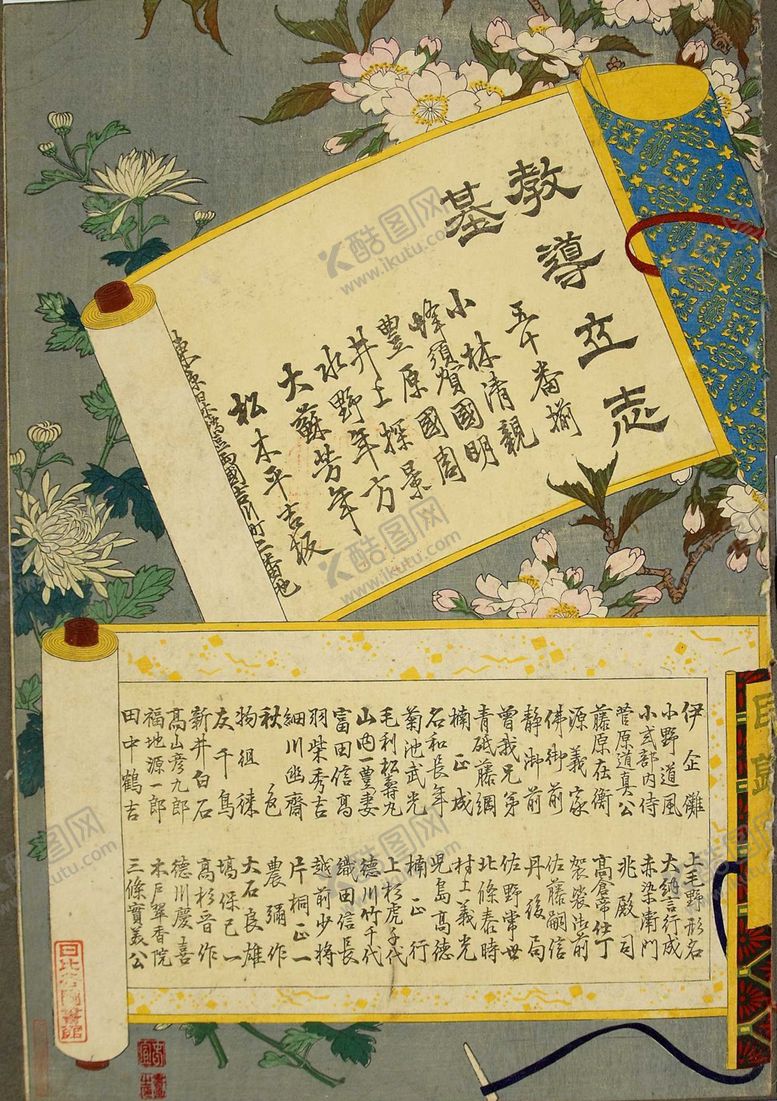 教導立志
基
五十番揃
小林清親
蜂須賀國明
豊原國周
井上探景
水野年方
大蘇芳年
松木平吉板
東京日本橋區両國吉川町二番地
伊企儺
小野道風
小式部内侍
菅原道真公
藤原在衡
源義家
佛御前
静御前
曽我兄弟
青砥藤綱
楠正成
名和長年
菊池武光
毛利松壽丸
山内一豊妻
富田信高
羽柴秀吉
細川幽齋
秋色
物徂徠
友千鳥
新井白石
高山彦九郎
福地源一郎
田中鶴吉
上毛野形名
大納言行成
赤染衛門
兆殿司
高倉帝仕丁
袈裟御前
佐藤嗣信
丹後局
佐野常世
北條泰時
村上義光
児島高徳
楠正行
上杉虎千代
徳川竹千代
織田信長
越前少将
片桐正一
農彌作
大石良雄
塙保己一
高杉晋作
徳川慶喜
木戸翠香院
三條實美公
日比谷圖書館
酷图网
www.ikutu.com